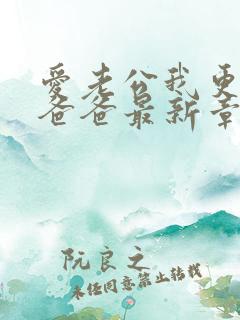 愛老公我更
爸爸最新章
阮良之
未经同意禁止转载